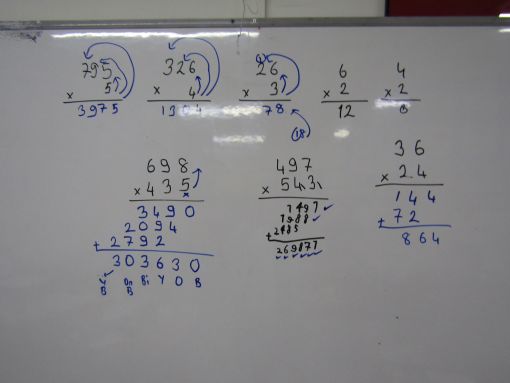 795
x 5
3975
326
x 4
1304
1
26
x 3
78
18
6
x 2
12
4
x 2
8
698
x 435
3490
2094
+ 2792
303630
Y On Bi Y O B
B B
497
x 543
1491
1988
+ 2485
269871
36
x 24
144
+ 72
864